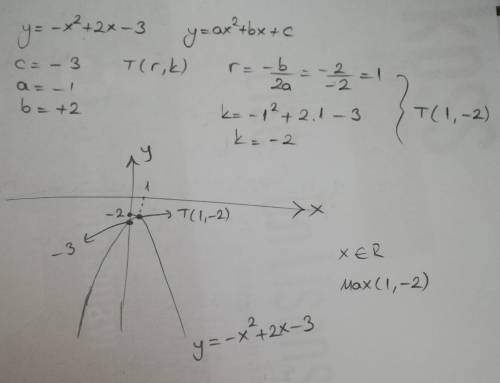 y=-x²+2x-3 y=ax²+bx+c
c=-3 T(r,k) r=-b/2a=-2/-2=1
a=-1
b=+2 k=-1²+2.1-3 } T(1,-2)
k=-2
y
1
x
-2 T(1,-2)
-3
x∈R
Max(1,-2)
y=-x²+2x-3